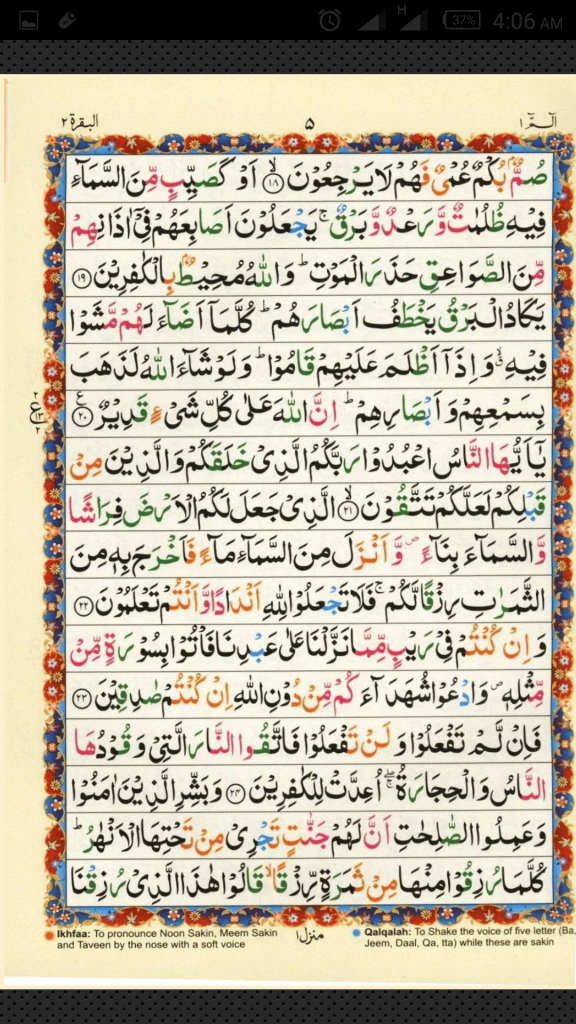 H 37% 4:06 AM
الٓـمّٓ ۱ ۵ البقرة ۲
صُمٌّۢ بُكْمٌ عُمْىٌ فَهُمْ لَا يَرْجِعُوْنَ ۙ‏﴿۱۸﴾ اَوْ كَصَيِّبٍ مِّنَ السَّمَآءِ
فِيْهِ ظُلُمٰتٌ وَّرَعْدٌ وَّبَرْقٌ ۚ يَجْعَلُوْنَ اَصَابِعَهُمْ فِىْٓ اٰذَانِهِمْ
مِّنَ الصَّوَاعِقِ حَذَرَ الْمَوْتِ ؕ وَاللّٰهُ مُحِيْطٌۢ بِالْكٰفِرِيْنَ ﴿۱۹﴾
يَكَادُ الْبَرْقُ يَخْطَفُ اَبْصَارَهُمْ ؕ كُلَّمَآ اَضَآءَ لَهُمْ مَّشَوْا
فِيْهِ ۙ وَاِذَآ اَظْلَمَ عَلَيْهِمْ قَامُوْا ؕ وَلَوْ شَآءَ اللّٰهُ لَذَهَبَ
بِسَمْعِهِمْ وَاَبْصَارِهِمْ ؕ اِنَّ اللّٰهَ عَلٰى كُلِّ شَىْءٍ قَدِيْرٌ ﴿۲۰﴾
۲ ع ۱۳ ۲
يٰٓاَيُّهَا النَّاسُ اعْبُدُوْا رَبَّكُمُ الَّذِىْ خَلَقَكُمْ وَالَّذِيْنَ مِنْ
قَبْلِكُمْ لَعَلَّكُمْ تَتَّقُوْنَ ۙ‏﴿۲۱﴾ الَّذِىْ جَعَلَ لَكُمُ الْاَرْضَ فِرَاشًا
وَّالسَّمَآءَ بِنَآءً ۖ وَّاَنْزَلَ مِنَ السَّمَآءِ مَآءً فَاَخْرَجَ بِهٖ مِنَ
الثَّمَرٰتِ رِزْقًا لَّكُمْ ۚ فَلَا تَجْعَلُوْا لِلّٰهِ اَنْدَادًا وَّاَنْتُمْ تَعْلَمُوْنَ ﴿۲۲﴾
وَاِنْ كُنْتُمْ فِىْ رَيْبٍ مِّمَّا نَزَّلْنَا عَلٰى عَبْدِنَا فَاْتُوْا بِسُوْرَةٍ مِّنْ
مِّثْلِهٖ ۖ وَادْعُوْا شُهَدَآءَكُمْ مِّنْ دُوْنِ اللّٰهِ اِنْ كُنْتُمْ صٰدِقِيْنَ ﴿۲۳﴾
فَاِنْ لَّمْ تَفْعَلُوْا وَلَنْ تَفْعَلُوْا فَاتَّقُوا النَّارَ الَّتِىْ وَقُوْدُهَا
النَّاسُ وَالْحِجَارَةُ ۖۚ اُعِدَّتْ لِلْكٰفِرِيْنَ ﴿۲۴﴾ وَبَشِّرِ الَّذِيْنَ اٰمَنُوْا
وَعَمِلُوا الصّٰلِحٰتِ اَنَّ لَهُمْ جَنّٰتٍ تَجْرِىْ مِنْ تَحْتِهَا الْاَنْهٰرُ ؕ
كُلَّمَا رُزِقُوْا مِنْهَا مِنْ ثَمَرَةٍ رِّزْقًا ۙ قَالُوْا هٰذَا الَّذِىْ رُزِقْنَا
منزل ۱
Ikhfaa: To pronounce Noon Sakin, Meem Sakin
and Taveen by the nose with a soft voice
Qalqalah: To Shake the voice of five letter (Ba,
Jeem, Daal, Qa, tta) while these are sakin